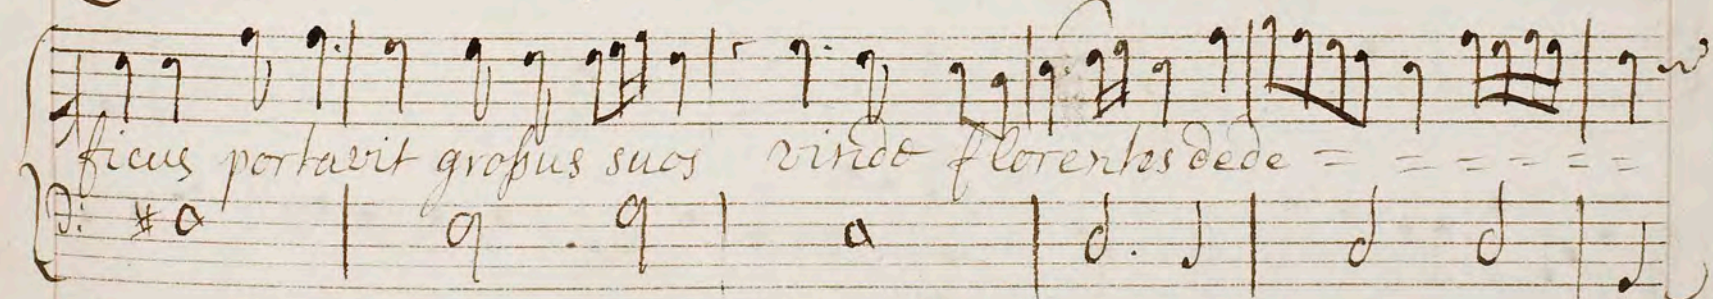 ficus portavit grossus suos vinde florentes dede = = = = = =